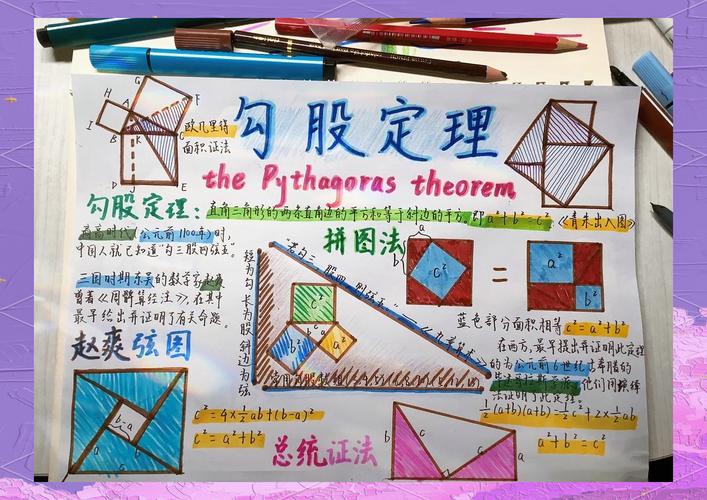 欧几里得
面积证法
勾股定理
the Pythagoras theorem
勾股定理：直角三角形的两条直角边的平方和等于斜边的平方。即a²+b²=c²
《青朱出入图》
商高时代(公元前1100年)时，
中国人就已知道"勾三股四弦五"。
三国时期东吴的数学家赵爽
曾着《周髀算经注》，在其中
最早给出并证明了有关命题。
赵爽弦图
b-a
c²=4×½ab+(b-a)²
c²=a²+b²
拼图法
a
b
c²
=
a²
b²
蓝色部分面积相等 c²=a²+b²
在西方，最早提出并证明此定理
的为公元前6世纪古希腊的
他们用演绎
法证明了此定理。
½(a+b)(a+b)=½c²+2×½ab
a²+b²=c²
短为勾长为股斜边为弦
"若勾三，股四，则弦五。"
——《九章算术》
c²
b²
a²
总统证法